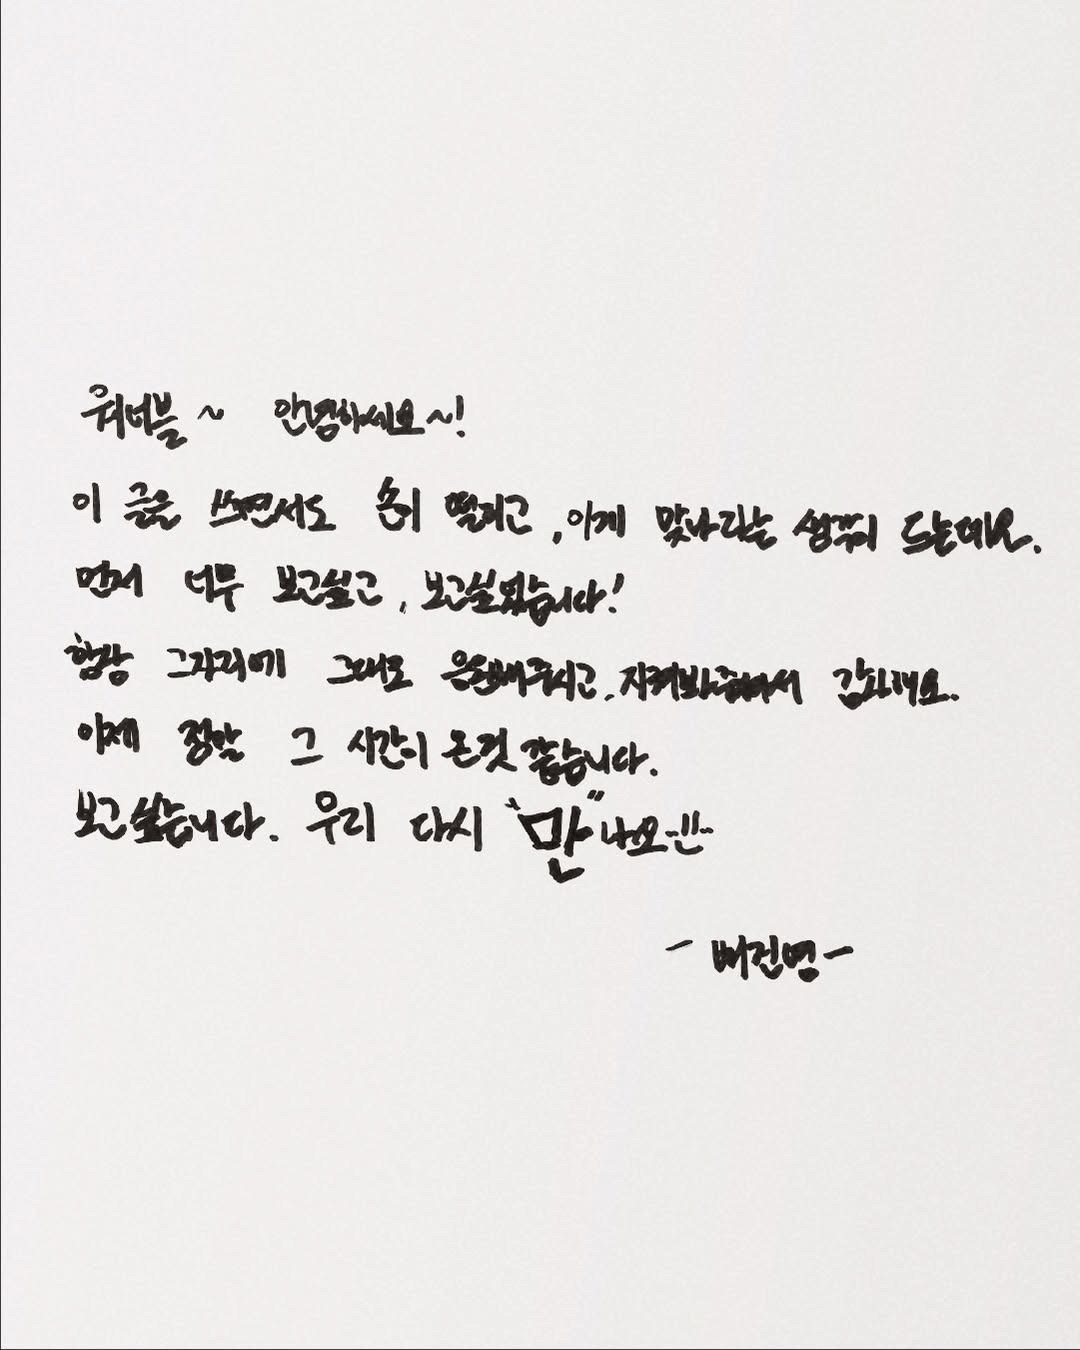 워너블~ 안녕하세요~!
이 글을 쓰면서도 손이 떨리고, 이게 맞나 라는 생각이 드는데요.
먼저 너무 보고싶고, 보고싶었습니다!
항상 그자리에 그대로 응원해주시고, 지켜봐주셔서 감사해요..
이제 정말 그 시간이 온것 같습니다.
보고싶습니다. 우리 다시 "만"나요..!!..
- 배진영 -